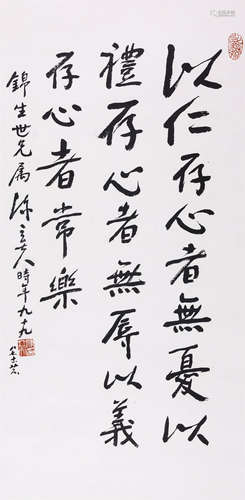 以仁存心者無憂以
禮存心者無辱以義
存心者常樂
錦生世兄属 陳立夫時年九十九